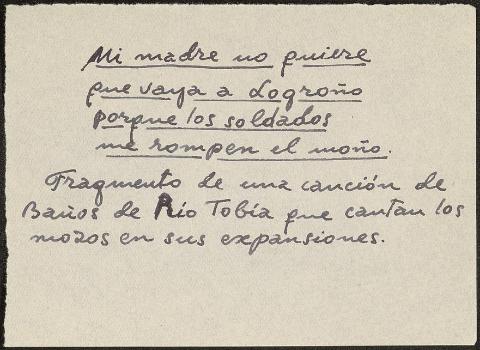 Mi madre no quiere
que vaya a Logroño
porque los soldados
me rompen el moño.
Fragmento de una canción de
Baños de Río Tobía que cantan los
mozos en sus expansiones.